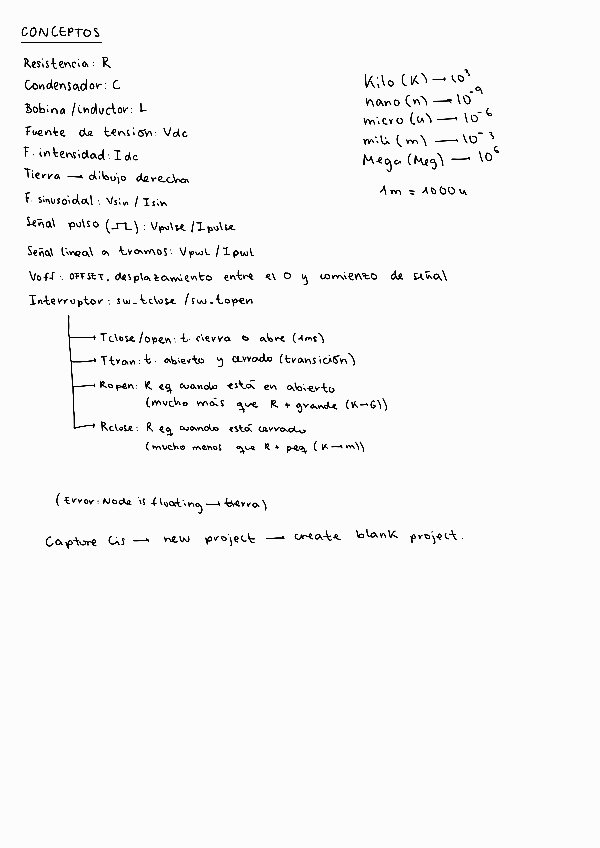 CONCEPTOS
Resistencia: R
Condensador: C
Bobina/inductor: L
Fuente de tensión: Vdc
F. intensidad: Idc
Tierra → dibujo derecha
F. sinusoidal: Vsin / Isin
Señal pulso (⎍): Vpulse/Ipulse
Señal lineal a tramos: Vpwl/Ipwl
Voff: OFFSET, desplazamiento entre el 0 y comienzo de señal
Interruptor: sw-tclose /sw-topen
→ Tclose/open: t. cierra o abre (1ms)
→ Ttran: t. abierto y cerrado (transición)
→ Ropen: R eq cuando está en abierto
(mucho más que R + grande (K→G))
→ Rclose: R eq cuando está cerrado
(mucho menos que R + peq (K→m))
Kilo (K) → 10³
nano (n) → 10⁻⁹
micro (u) → 10⁻⁶
mili (m) → 10⁻³
Mega (Meg) → 10⁶
1m = 1000u
(Error: Node is floating → tierra)
Capture Cis → new project → create blank project.